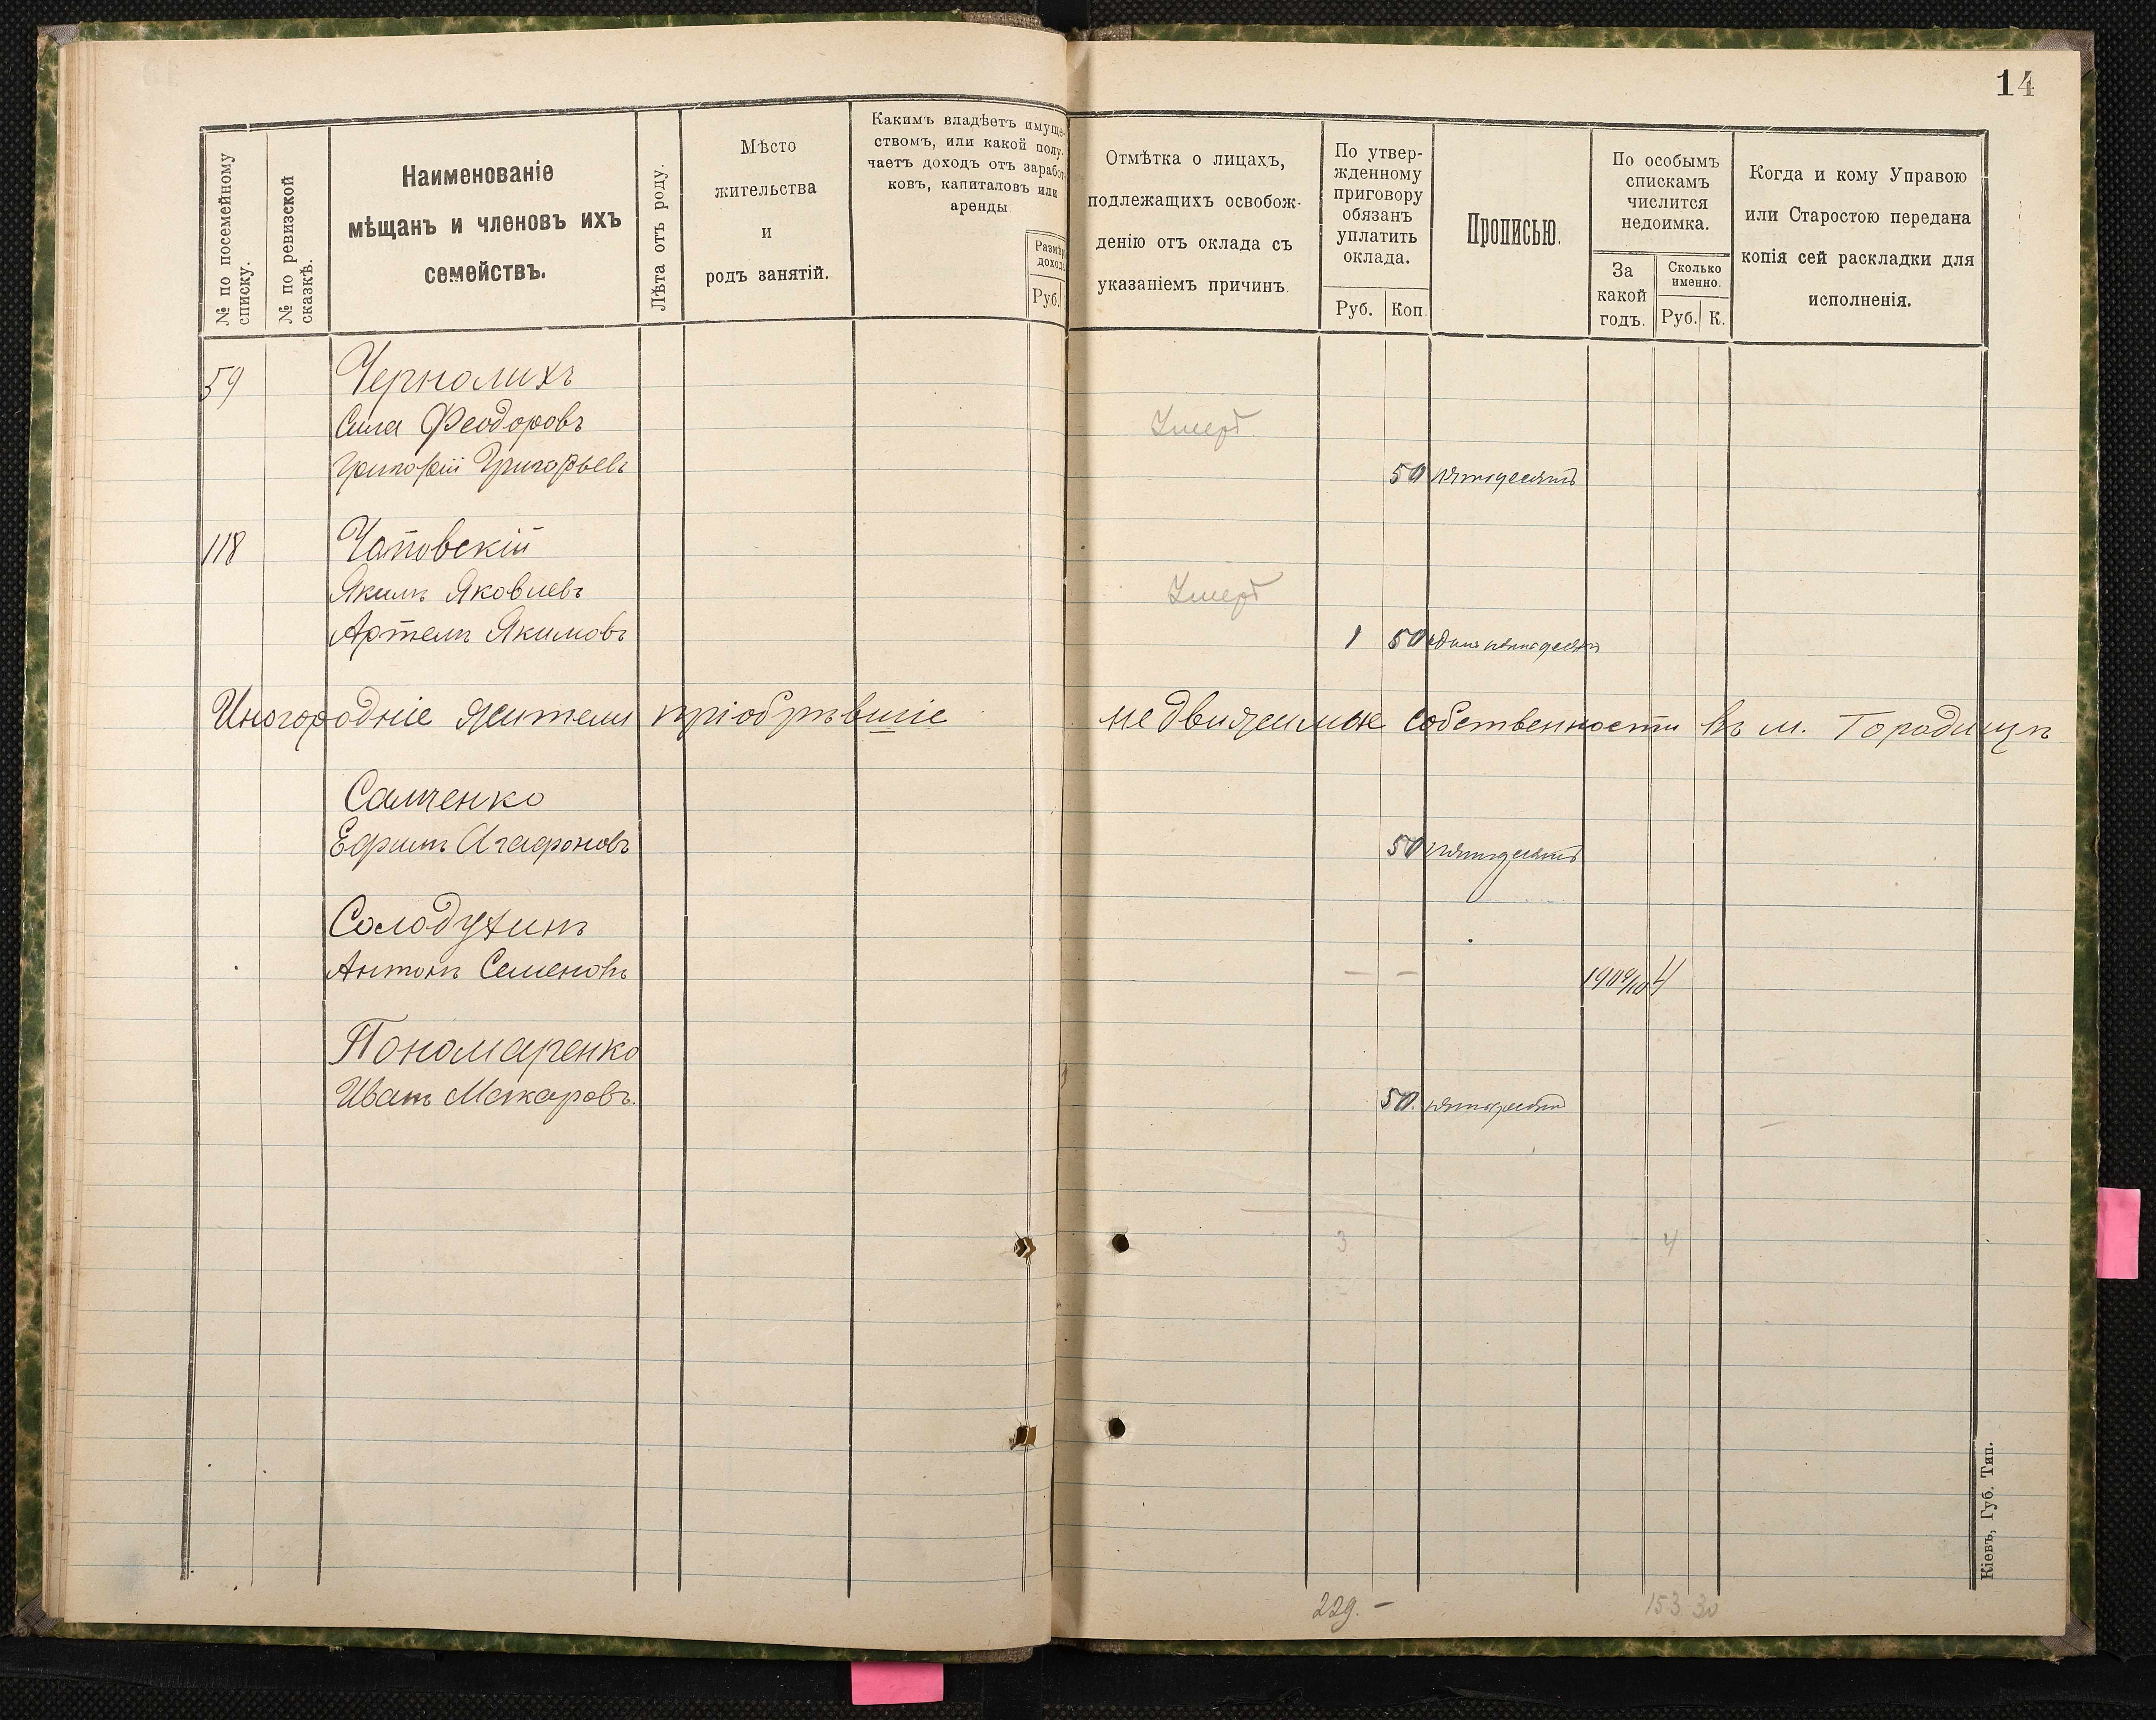 14
№ по посемейному списку.
№ по ревизской сказкѣ.
Наименованіе
мѣщанъ и членовъ ихъ
семействъ.
Лѣта отъ роду.
Мѣсто
жительства
и
родъ занятій.
Какимъ владѣетъ имуще-
ствомъ, или какой полу-
чаетъ доходъ отъ заработ-
ковъ, капиталовъ или
аренды
Размѣръ
дохода
Руб.
Отмѣтка о лицахъ,
подлежащихъ освобож-
денію отъ оклада съ
указаніемъ причинъ.
По утвер-
жденному
приговору
обязанъ
уплатить
оклада.
Руб. Коп.
Прописью.
По особымъ
спискамъ
числится
недоимка.
За
какой
годъ.
Сколько
именно.
Руб. К.
Когда и кому Управою
или Старостою передана
копія сей раскладки для
исполненія.
59 Чернолихъ
Сила Феодоровъ Умеръ
Григорій Григорьевъ 50 пятьдесятъ
118 Чаповскій
Якимъ Яковлевъ Умеръ
Артемъ Якимовъ 1 50 одинъ пятьдесятъ
Иногородніе жители пріобрѣвшіе недвижимые собственности въ м. Городищѣ
Самченко
Ефимъ Агафоновъ 50 пятьдесятъ
Солодухинъ
Антонъ Семеновъ — — 4
Пономаренко
Иванъ Макаровъ. 50 пятьдесятъ
3 4
229. — 153 30
Кіевъ, Губ. Тип.